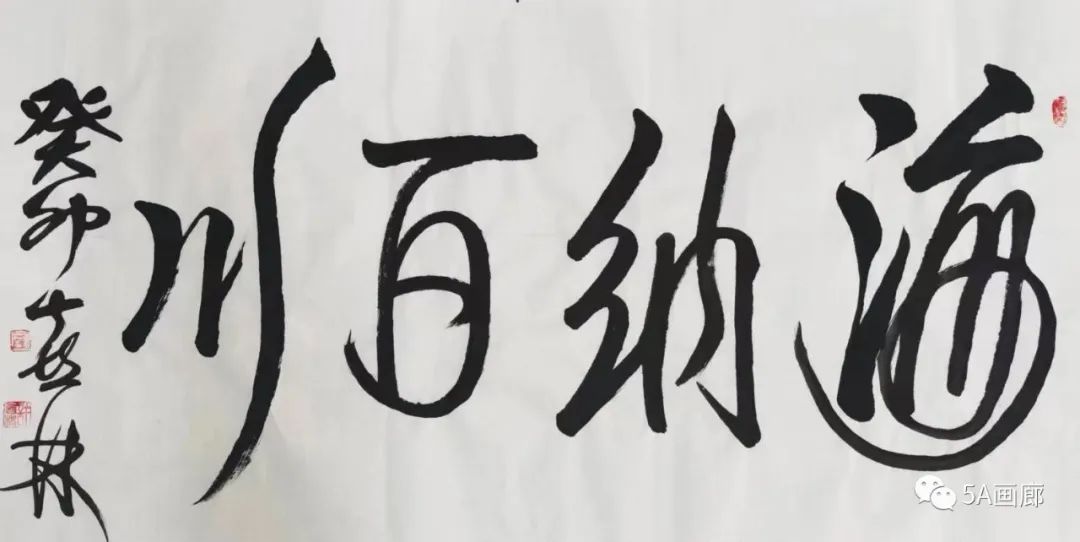 海纳百川
癸卯 喜林
5A画廊